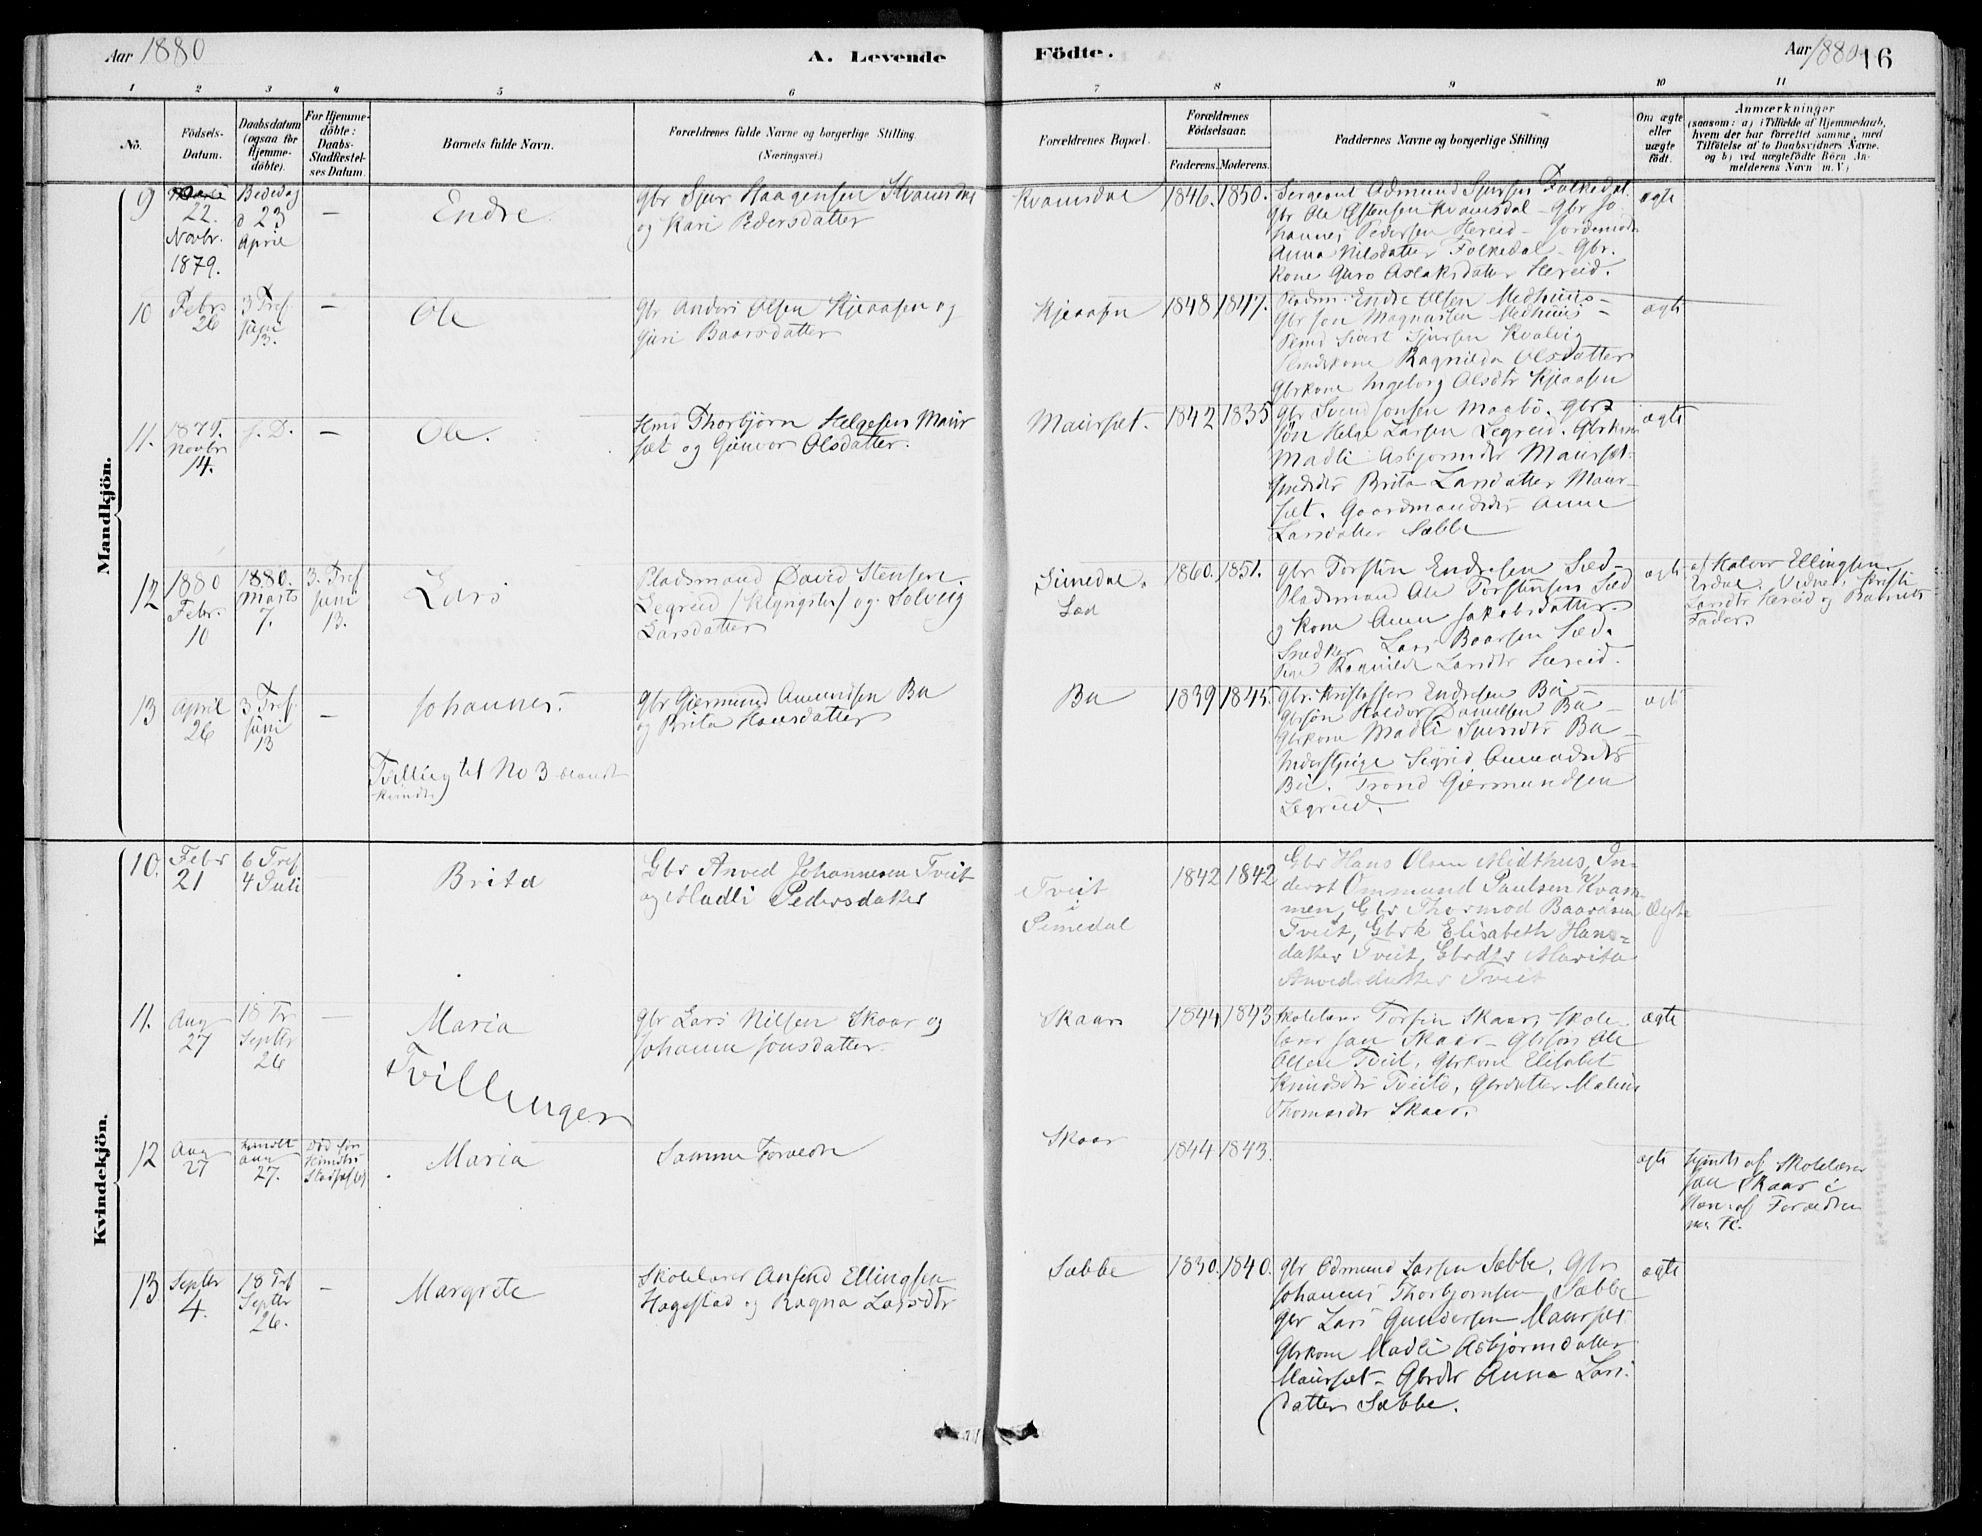 Aar 1880
A. Levende
Födte.
Aar 1880
16
1 2 3 4 5 6
7 8 9 10 11
No.
Födsels-
Datum.
Daabsdatum
(ogsaa for
Hjemme-
döbte).
For Hjemme-
döbte:
Daabs-
Stadfæstel-
ses Datum.
Barnets fulde Navn.
Forældrenes fulde Navne og borgerlige Stilling.
(Næringsvei.)
Forældrenes Bopæl.
Forældrenes
Födselsaar.
Faderens.
Moderens.
Faddernes Navne og borgerlige Stilling
Om ægte
eller
uægte
födt.
Anmærkninger
(saasom: a) i Tilfælde af Hjemmedaab,
hvem der har forrettet samme, med
Tilföielse af to Daabsvidners Navne,
og b) ved uægtefödte Börn An-
melderens Navn m.V.)
Mandkjön.
9
22.
Novbr.
1879.
Bededag
d 23
April
–
Endre.
gbr Sjur Haagensen Kvamsdal
og Kari Pedersdatter
Kvamsdal
1846.
1850.
Sergeant Odmund Sjursen Folkedal
gbr Ole Østensen Kvamsdal – Gbr Jo
hannes Pedersen Hereid – Jordemoder
Anna Nilsdatter Folkedal – Gbr.
kone Guro Aslaksdatter Hereid.
ægte
10
Febr
26
3 Tref
Juni
13.
–
Ole
gbr Anders Olsen Kjeaasen og
Guri Baarsdatter
Kjeaasen
1848
1847.
Pladsm. Endre Olsen Medhuus –
Gbrsøn Magnus Medhuus –
Plmd Sivert Sjursen Kvalvig
Plmdskone Ragnilda Olsdatter
Gbrkone Ingeborg Olsdtr Kjeaasen
ægte
11.
1879.
Novbr
14.
s. D.
–
Ole.
Hmd Thorbjörn Helgesen Maur
sæt og Gunvor Olsdatter.
Maursæt.
1842
1835
gbr Svend Jonsen Maabö. Gbr
søn Helge Larsen Legreid. Gbrkone
Madli Asbjørnsdtr Maursæt.
Brita Larsdatter Maur-
sæt. Gaardmandsdtr Anne
Larsdatter Sæbbe
ægte
12
1880
Febr.
10
1880.
Marts
7.
3. Tref
Juni
13.
Lars
Pladsmand David Stensen
Legreid og Solveig
Larsdatter
Simedal.
Sæd
1860.
1851.
gbr Torstin Endresen Sæd –
Pladsmand Ole Torstensen Sæd
og kone Anna Jakobsdatter.
Snedker Lars Baarsen Sæd.
Pige Ragnilde Larsdtr Hereid.
ægte
af Halvor Ellingsen
Erdal. Vidner, Kristi
Larsdtr Hereid og Barnets
Fader.
13
April
26
3 Tref.
Juni
13
–
Johannes.
Tvilling til No 3 blandt
Kvindek.
Gbr Gjermund Amundsen Bu
og Brita Hansdatter
Bu
1839
1845.
Gbr. Kristoffer Endresen Bu –
Gbrsøn Haldor Danielsen Bu –
Gbrkone Madli Sjursdtr Bu –
Inderstpige Sigrid Amundsdtr
Bu. Trond Gjermundsen
Legreid.
ægt
Kvindekjön.
10.
Febr
21
6 Tref
4 Juli
Brita
Gbr Anved Johannesen Tveit
og Madli Pedersdatter
Tveit
i
Simedal
1842
1842
Gbr Hans Olsen Midthus, In-
derst Ommund Paulsen Kvam-
men, Gbr Thormod Baardsen
Tveit, Gbrk Elisabeth Hans-
datter Tveit, Gbrdtr Marita
Anvedsdatter Tveit
Ægte
11.
Aug
27
18 Tr
Septbr
26
–
Maria
Tvillinger
gbr Lars Nilsen Skaar og
Johanna Jonsdatter.
Skaar
1844
1843
Skolelærer Torfin Skaar, Skole-
lærer Jan Skaar – Gbrsøn Ole
Olsen Tveit, Gbrkone Elisabet
Knudsdtr Tveito, Gbrdatter Malene
Thomasdtr Skaar.
ægte
12
Aug
27
Aug
27.
Død før
Maria
Samme Forældre
Skaar
1844
1843.
ægte
hjmdt af Skolelærer
Jan Skaar i
Nærv. af Forældrene
13
Septbr
4.
18 Tref
Septbr
26.
–
Margrete
Skolelærer Anfind Ellingsen
Hagestad og Ragna Larsdtr
Sæbbe
1830.
1840.
gbr Odmund Larsen Sæbbe, Gbr
Johannes Thorbjørnsen Sæbbe
gbr Lars Gundersen Maursæt.
Gbrkone Madli Asbjørnsdatter
Maursæt – Gbrdtr Anna Lars
datter Sæbbe.
ægte